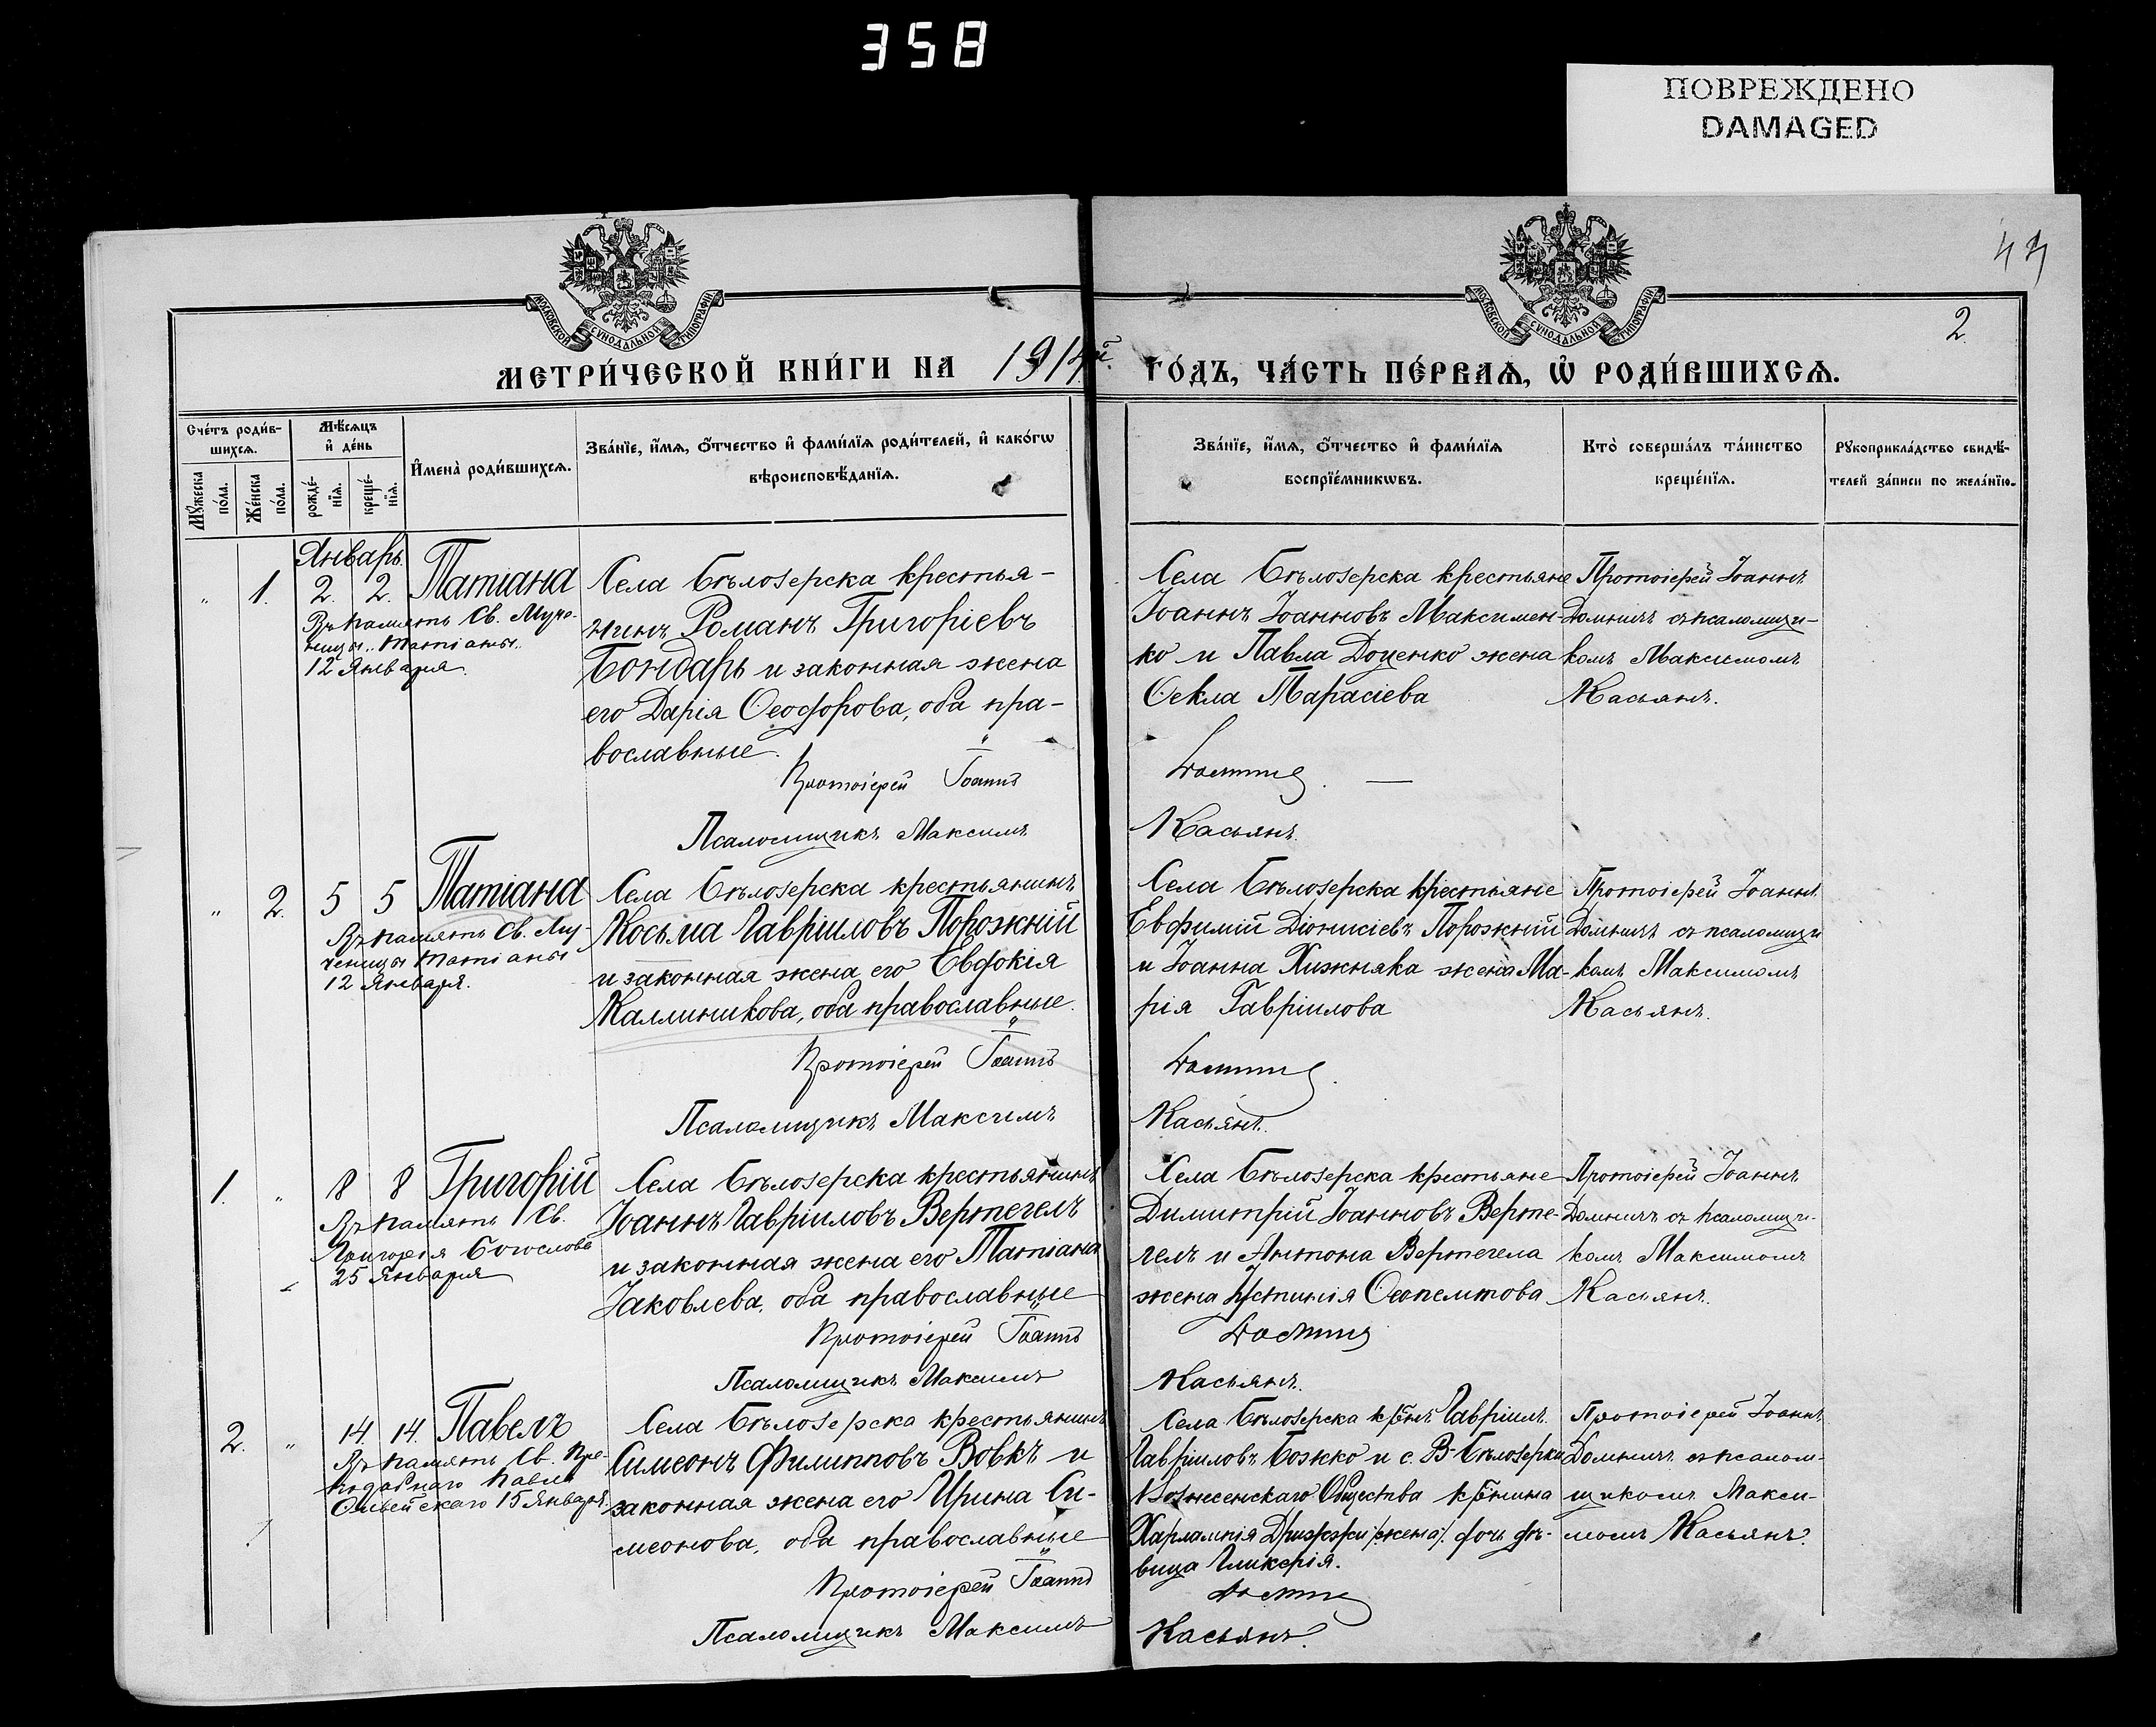 358
ПОВРЕЖДЕНО
DAMAGED
44
2.
МОСКОВСКОЙ СѴНОДАЛЬНОЙ ТИПОГРАФІИ
МОСКОВСКОЙ СѴНОДАЛЬНОЙ ТИПОГРАФІИ
МЕТРИ́ЧЕСКОЙ КНИ́ГИ НА 1914й. ГО́ДЪ, ЧА́СТЬ ПЕ́РВАѦ, Ѡ҆ РОДИ́ВШИХСѦ.
Сче́тъ роди́в-
шихсѧ.
Мꙋ́жеска по́ла.
Же́нска по́ла.
Мѣ́сѧцъ
и҆ де́нь
рожде́-
нїѧ.
креще́-
нїѧ.
И҆мена̀ роди́вшихсѧ.
Зва́нїе, и҆́мѧ, ѻ҆́тчество и҆ фами́лїѧ роди́телей, и҆ како́гѡ
вѣроисповѣ́данїѧ.
Зва́нїе, и҆́мѧ, ѻ҆́тчество и҆ фами́лїѧ
воспрїе́мникѡвъ.
Кто̀ соверша́лъ та́инство
креще́нїѧ.
Рꙋкоприкла́дство свидѣ́-
телей за́писи по жела́нїю.
Январь.
" 1. 2. 2. Татіана
Въ память Св. Муче-
ницы Татіаны
12 Января.
Села Бѣлозерска крестья-
нинъ Романъ Григоріевъ
Бондарь и законная жена
его Дарія Ѳеодорова, оба пра-
вославные.
Протоіерей Іоаннъ
Псаломщикъ Максимъ
Села Бѣлозерска крестьяне
Іоаннъ Іоанновъ Максимен-
ко и Павла Доценко жена
Ѳекла Тарасіева
Касьянъ.
Протоіерей Іоаннъ
Домничъ съ псаломщи-
комъ Максимомъ
Касьянъ.
" 2. 5 5 Татіана
Въ память Св. Му-
ченицы Татіаны
12 Января.
Села Бѣлозерска крестьянинъ
Косьма Гавріиловъ Порожній
и законная жена его Евдокія
Каллиникова, оба православные.
Протоіерей Іоаннъ
Псаломщикъ Максимъ
Села Бѣлозерска крестьяне
Евфимій Діонисіевъ Порожній
и Іоанна Хижняка жена Ма-
рія Гавріилова
Касьянъ.
Протоіерей Іоаннъ
Домничъ съ псаломщи
комъ Максимомъ
Касьянъ.
1. " 8 8 Григорій
Въ память Св.
Григорія Богослова
25 Января
Села Бѣлозерска крестьянинъ
Іоаннъ Гавріиловъ Вертегелъ
и законная жена его Татіана
Іаковлева, оба православные
Протоіерей Іоаннъ
Псаломщикъ Максимъ
Села Бѣлозерска крестьяне
Димитрій Іоанновъ Верте-
гелъ и Антона Вертегела
жена Іустинія Ѳеопемптова
Касьянъ.
Протоіерей Іоаннъ
Домничъ съ псаломщи-
комъ Максимомъ
Касьянъ.
2. " 14. 14. Павелъ
Въ память Св. Пре-
подобнаго Павла
Ѳивейскаго 15 Января.
Села Бѣлозерска крестьянинъ
Симеонъ Филипповъ Вовкъ и
законная жена его Ирина Си-
меонова, оба православные
Протоіерей Іоаннъ
Псаломщикъ Максимъ
Села Бѣлозерска кр-нъ Гавріилъ
Гавріиловъ Божко и с. В-Бѣлозерки
Вознесенскаго Общества кр-нина
Харлампія /жена/ дочь дѣ-
вица Гликерія.
Касьянъ.
Протоіерей Іоаннъ
Домничъ съ псалом-
щикомъ Макси-
момъ Касьянъ.